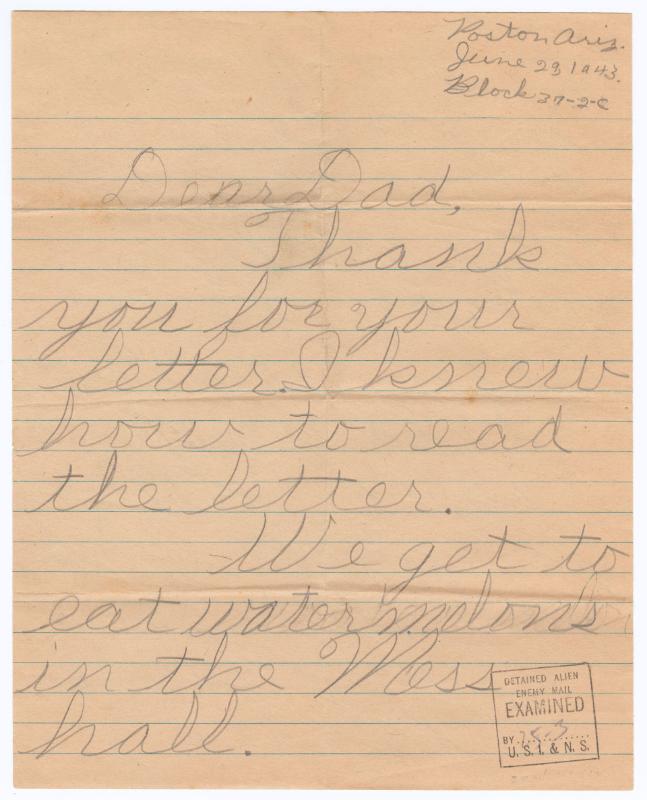 Poston Ariz.
June 29, 1943.
Block 37-2-C
Dear Dad,
Thank
you for your
letter. I knew
how to read
the letter.
We get to
eat watermelons
in the Mess
hall.
DETAINED ALIEN
ENEMY MAIL
EXAMINED
BY
U. S. I. & N. S.